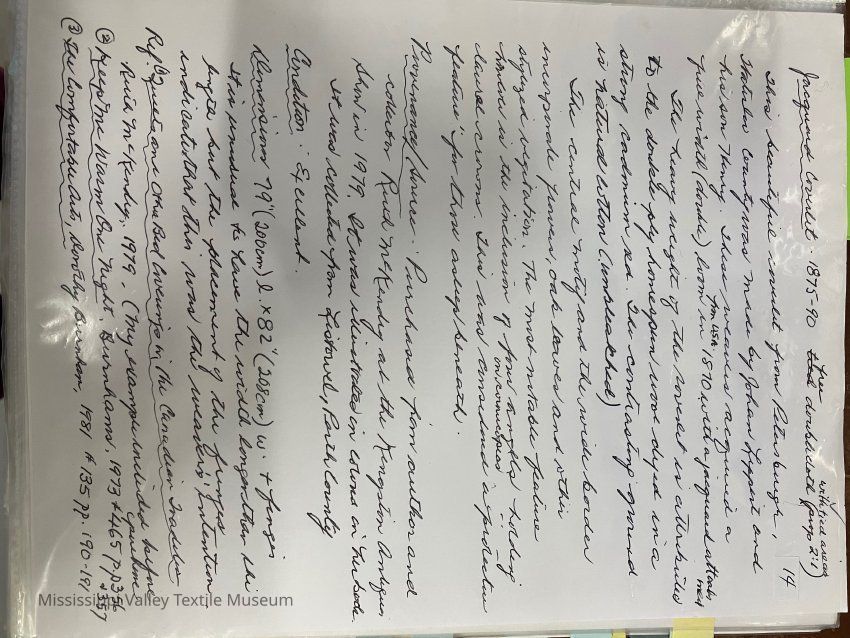 with tied areas
14
Jacquard Coverlet. 1875-90 free doublecloth (prop 2:1)
This beautiful coverlet from Petersburg,
Waterloo County was made by Johan Lippert and
his son Henry. These weavers acquired a
from USA
full width (double) loom in 1870 with a jacquard attachment
The heavy weight of the coverlet is attributed
to the double ply homespun wool dyed in a
strong cadmium red. The contrasting ground
is natural cotton (unbleached)
The central motif and the wide border
incorporate flowers, oak leaves and other
stylized vegetation. The most notable feature
is the inclusion of four angels holding
laurel crowns. This was considered a protective
feature for those asleep beneath.
Provenance/Source: Purchased from author and
collector Ruth McKendry at the Kingston Antique
Show in 1979. It was illustrated in colour in
It was collected from Listowel, Perth County
Condition: Excellent.
Dimensions 79" (200cm) l. x 82" (208cm) w. + fringe
It is unusual to have the width longer than the
length but the placement of the fringes
indicate that this was the weavers' intention
Ref. ① Quilts and Other Bed Coverings in the Canadian Tradition
Ruth McKendry, 1979. (My example included before purchase
② Keep Me Warm One Night, Burnhams, 1973 #465 p.356 + 357
③ The Comfortable Arts, Dorothy Burnham, 1981 #135 pp. 190-191
Mississippi Valley Textile Museum